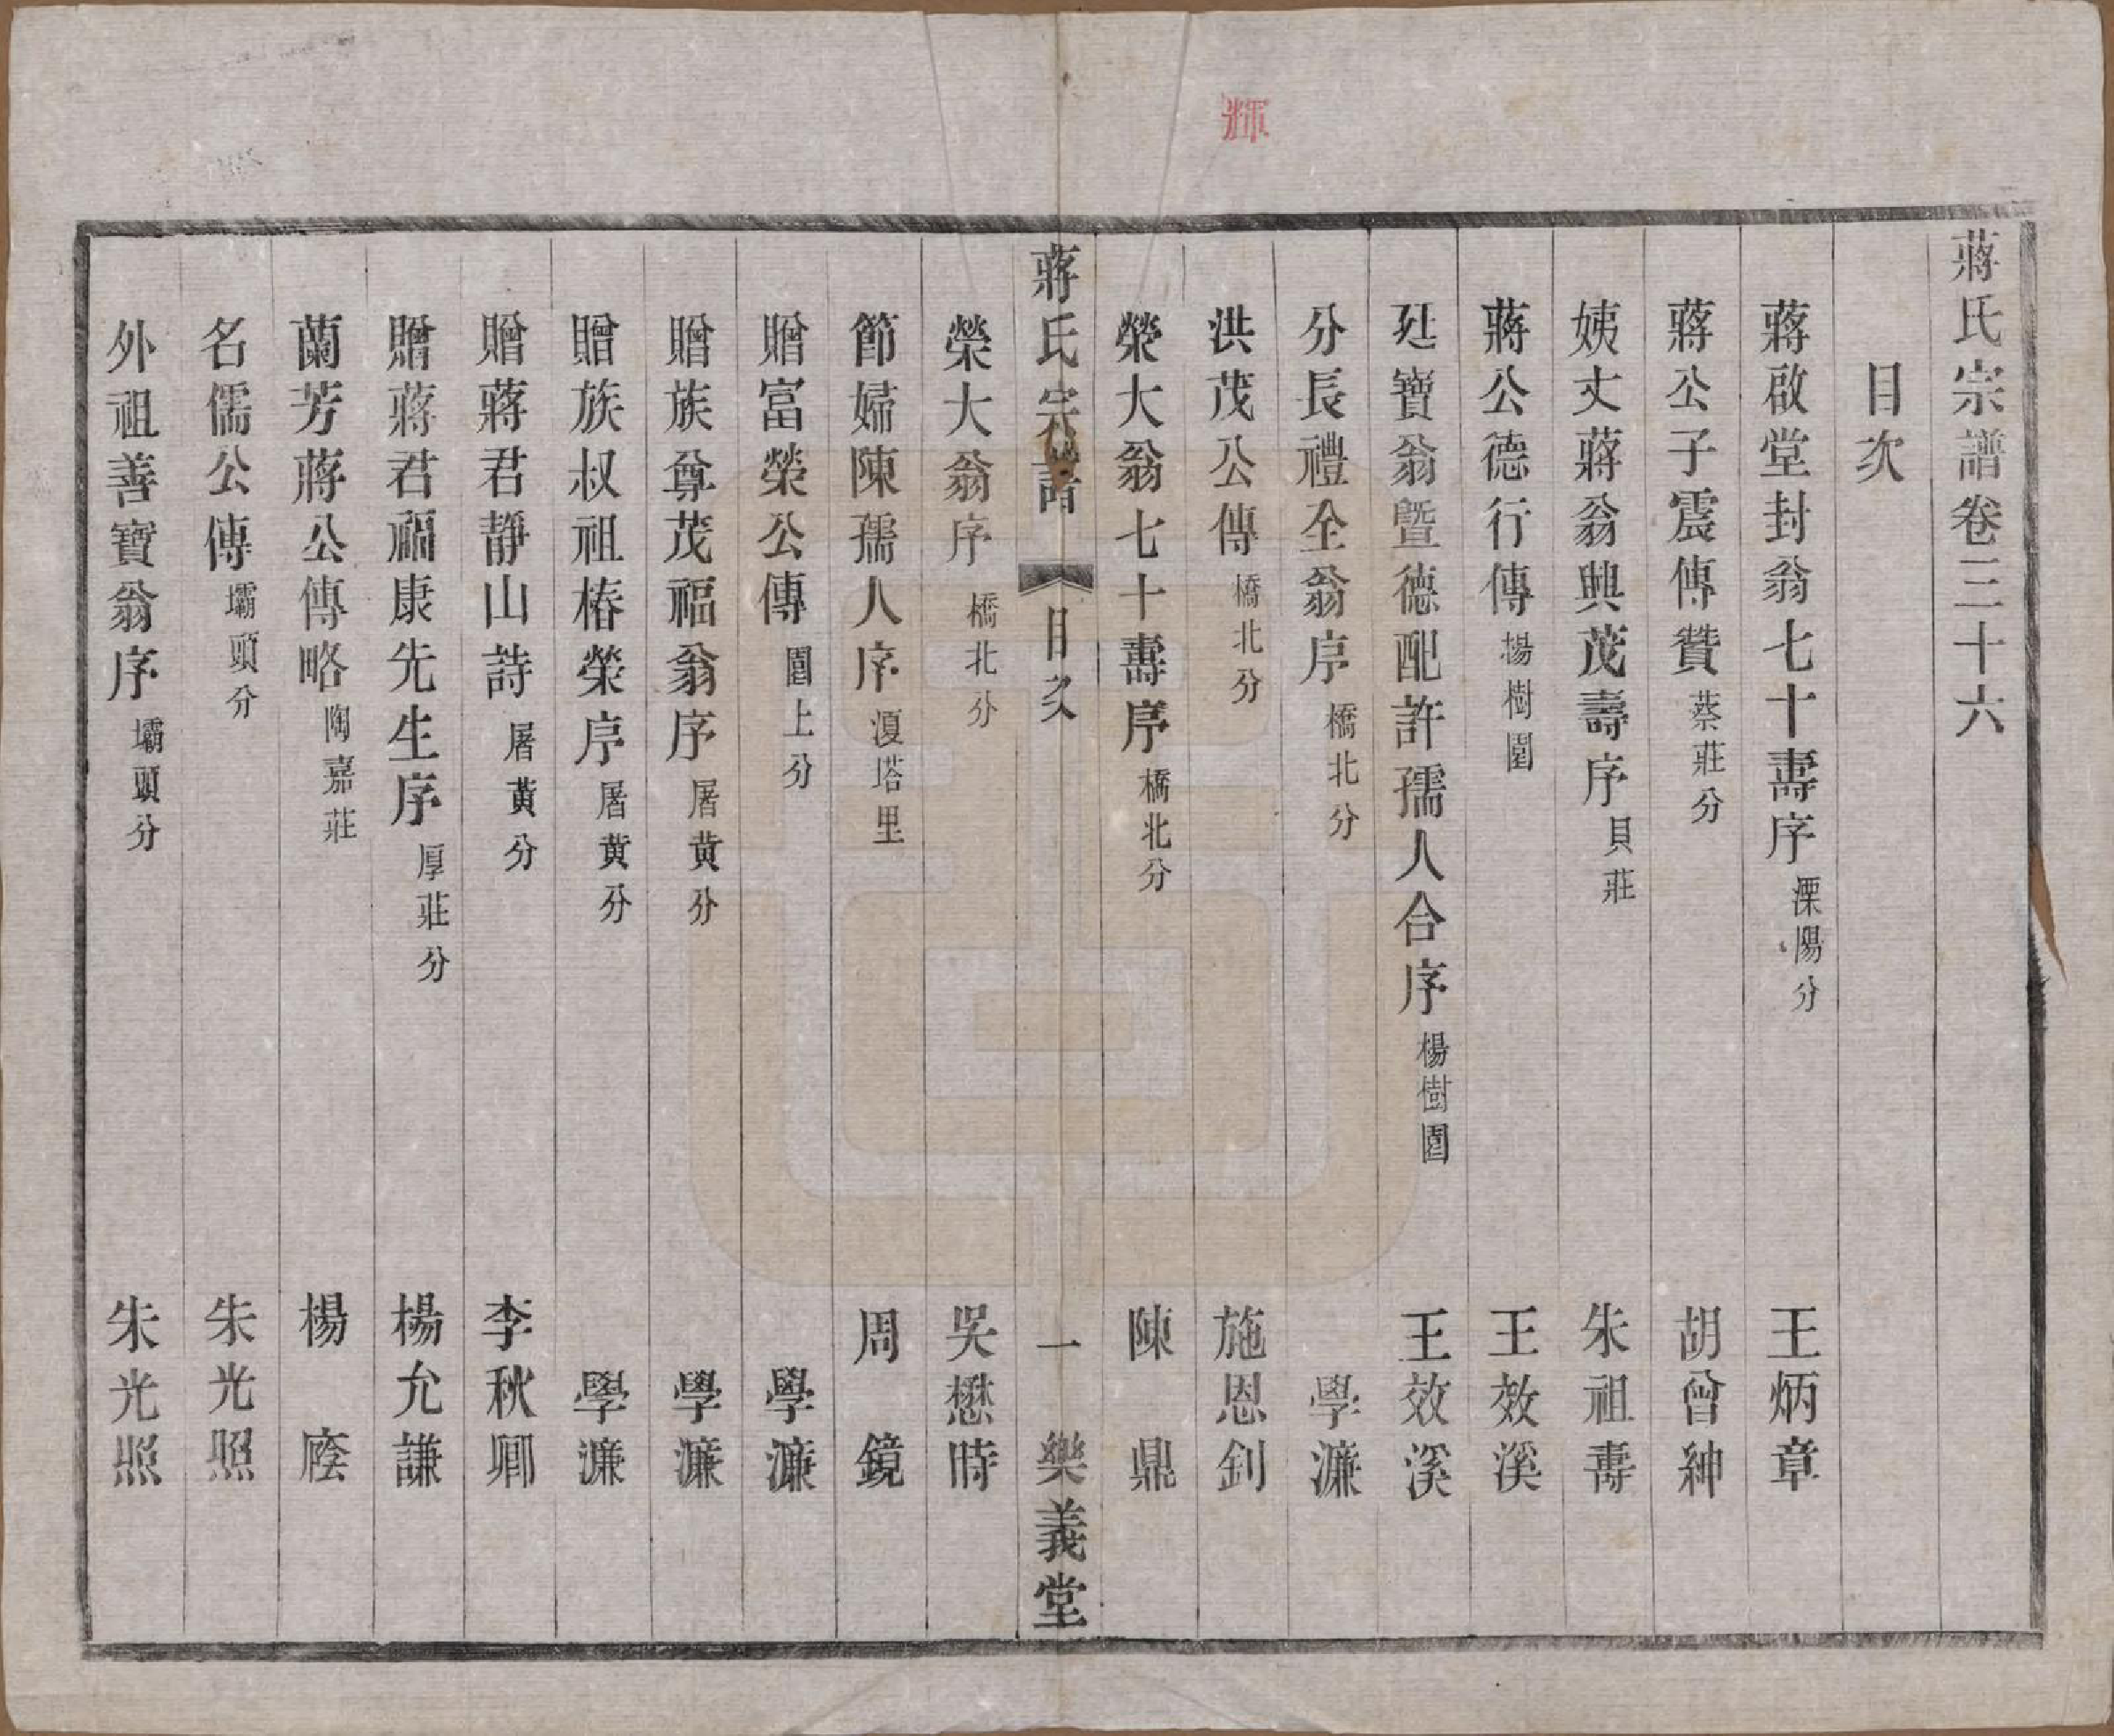 輝
蔣氏宗譜卷三十六
目次
蔣啟堂封翁七十壽序 溧陽分 王炳章
蔣公子震傳贊 蔡莊分 胡曾紳
姨丈蔣翁興茂壽序 貝莊 朱祖壽
蔣公德行傳 楊樹園 王效溪
廷寶翁暨德配許孺人合序 楊樹園 王效溪
分長禮全翁序 橋北分 學濂
洪茂公傳 橋北分 施恩釗
榮大翁七十壽序 橋北分 陳鼎
蔣氏宗譜 目次 一 樂義堂
榮大翁序 橋北分 吳懋時
節婦陳孺人序 夏塔里 周鏡
贈富榮公傳 圍上分 學濂
贈族尊茂福翁序 屠黃分 學濂
贈族叔祖椿榮序 屠黃分 學濂
贈蔣君靜山詩 屠黃分 李秋卿
贈蔣君福康先生序 厚莊分 楊允謙
蘭芳蔣公傳略 陶嘉莊 楊蔭
名儒公傳 壩頭分 朱光照
外祖善寶翁序 壩頭分 朱光照